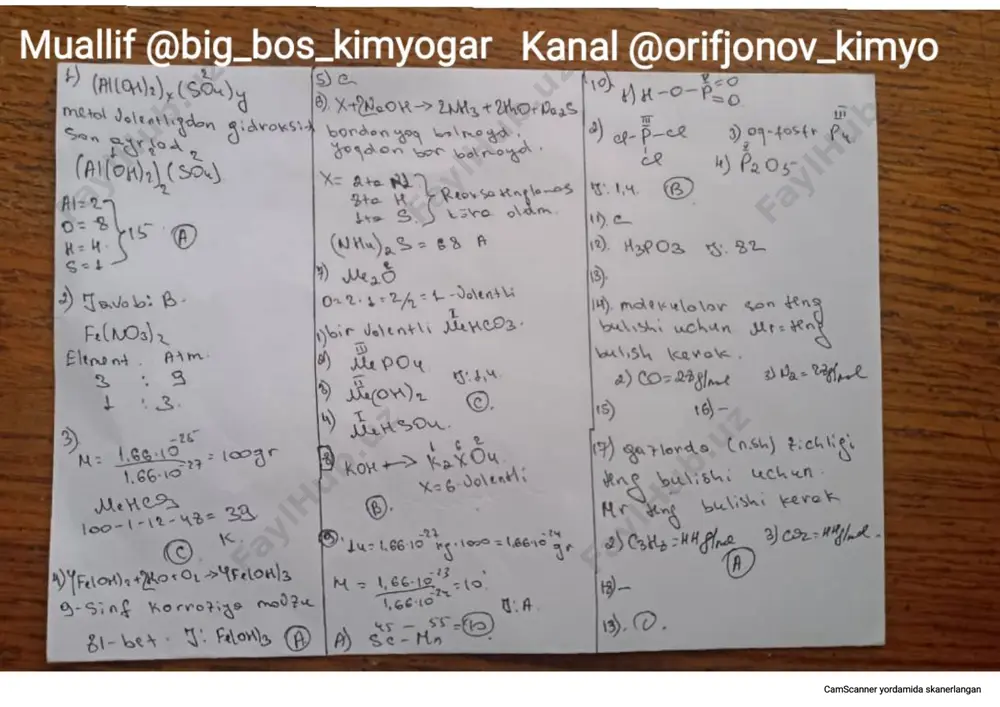 Muallif @big_bos_kimyogar Kanal @orifjonov_kimyo
1) (Al(OH)2)x(SO4)y
metal valentligdan gidroksid
son ayrlad
(Al(OH)2)2(SO4)
Al=2
O=8
H=4
S=1
15 A
2) Javob: B.
Fe(NO3)2
Element. Atm.
3 : 9
1 : 3.
3)
M= 1.66·10-25 / 1.66·10-27 = 100gr
MeHCO3
100-1-12-48=39
K.
C
4) 4Fe(OH)2+2H2O+O2→4Fe(OH)3
9-sinf korroziya mavzu
81-bet. J: Fe(OH)3 A
5) C
6) X+2NaOH→2NH3+2H2O+Na2S
bordan yoq bolmaydi.
yoqdan bor bolmaydi.
X= 2ta N
8ta H
1ta S.
Reaksa tenglamas
köra oldm.
(NH4)2S=68 A
7) Me2O
O=2·1=2/2=1-valentli
1) bir valentli MeHCO3.
2) MePO4
3) Me(OH)2
4) MeHSO4.
J: 1,4.
C
8 KOH → K2XO4
X=6-valentli
B.
9. 1u=1.66·10-27 kg·1000=1.66·10-24 gr
M= 1,66·10-23 / 1,66·10-24 =10
J: A.
45 - 55 =10
A) Sc - Mn
10. 1) H-O-P=O
=O
2) Cl-P-Cl
Cl
3) oq-fosfr P4
4) P2O5
J: 1,4. B
11). C
12). H3PO3 J: 82
13).
14). molekulalar son teng
bulishi uchun Mr=teng
bulish kerak.
2) CO=28g/mol 3) N2=28g/mol
15) 16)-
17) gazlarda (n.sh) zichligi
teng bulishi uchun.
Mr teng bulishi kerak
2) C3H8=44g/mol 3) CO2=44g/mol.
A
18)-
19).
CamScanner yordamida skanerlangan
FaylHub.uz
FaylHub.uz
FaylHub.uz
FaylHub.uz